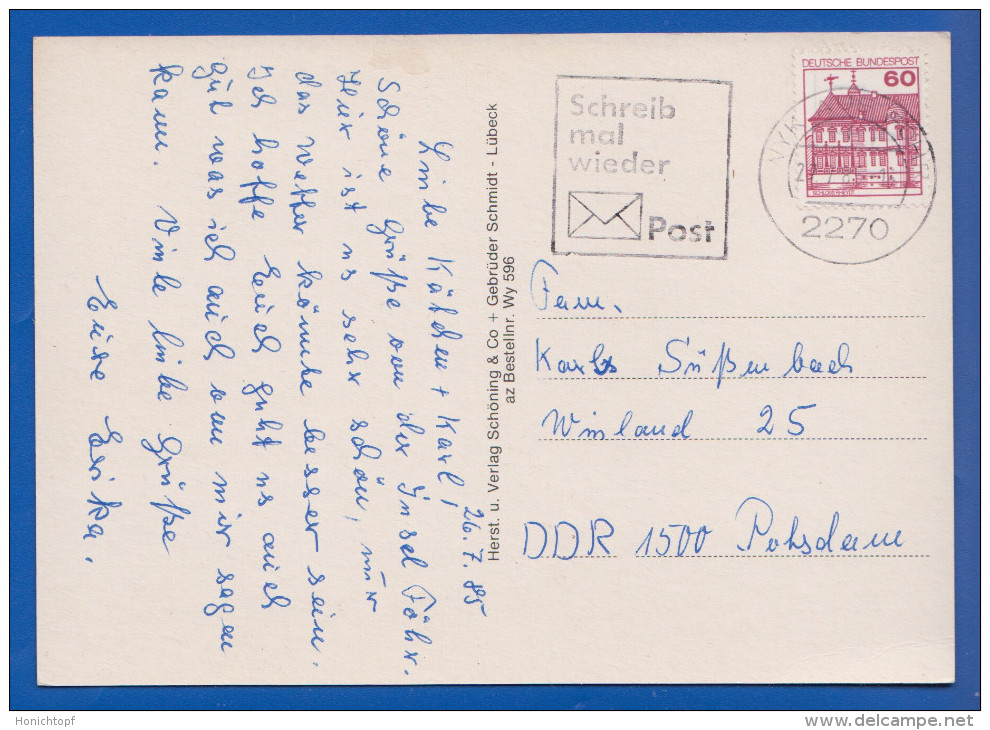 Liebe Kätchen + Karl!
26.7.85
Schöne Grüße von der Insel Föhr.
Hier ist es sehr schön, nur
das Wetter könnte besser sein.
Ich hoffe Euch geht es auch
gut was ich auch von mir sagen
kann. Viele liebe Grüße
Eure Erika.
Herst. u. Verlag Schöning & Co + Gebrüder Schmidt - Lübeck
az Bestellnr. Wy 596
Schreib
mal
wieder
Post
DEUTSCHE BUNDESPOST
60
2270
Fam.
Karl Süßenbach
Winland 25
DDR 1500 Potsdam
Honichtopf
www.delcampe.net